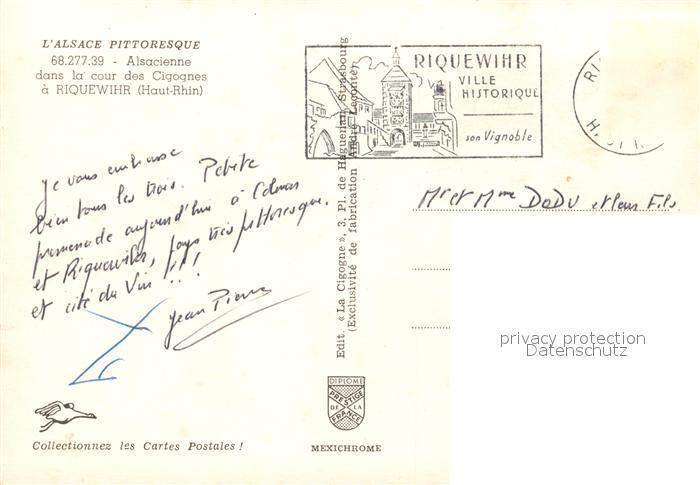 L'ALSACE PITTORESQUE
68.277.39 - Alsacienne
dans la cour des Cigognes
à RIQUEWIHR (Haut-Rhin)
Je vous embrasse
bien tous les trois. Petite
promenade aujourd'hui à Colmar
et Riquewihr, pays très pittoresque.
et cité du Vin !!!
Jean Pierre
Collectionnez les Cartes Postales !
Edit. « La Cigogne », 3, Pl. de Haguenau, Strasbourg
(Exclusivité de fabrication André Leconte)
DIPLOME
PRESTIGE
DE LA
FRANCE
MEXICHROME
RIQUEWIHR
VILLE
HISTORIQUE
son Vignoble
Mr et Mme DODU et leur Fils
privacy protection
Datenschutz